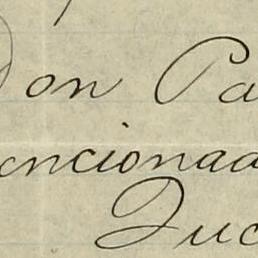 Don Pa
encionad
Juc